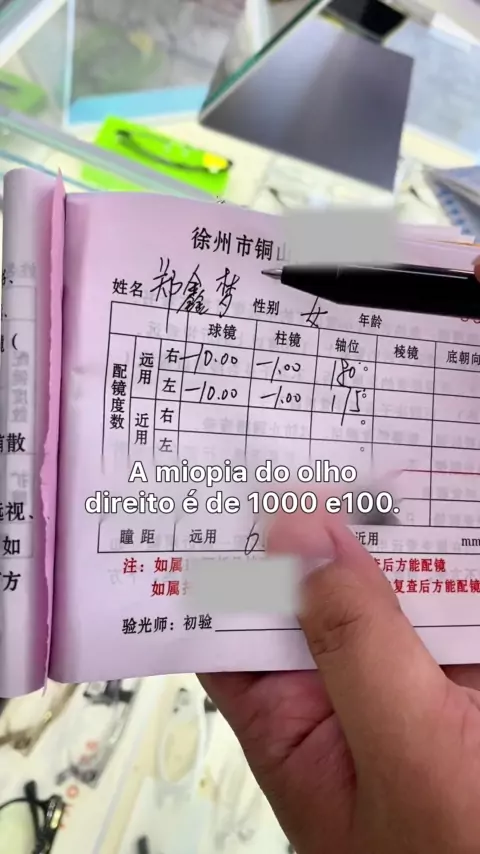 徐州市铜山
姓名 郑鑫梦 性别 女 年龄
球镜 柱镜 轴位 棱镜 底朝向
配镜度数 远用 右 -10.00 -1.00 180°
左 -10.00 -1.00 175°
近用 右
左
A miopia do olho
direito é de 1000 e100.
瞳距 远用 6 近用 mm
注：如属 查后方能配镜
如属 复查后方能配镜
验光师：初验